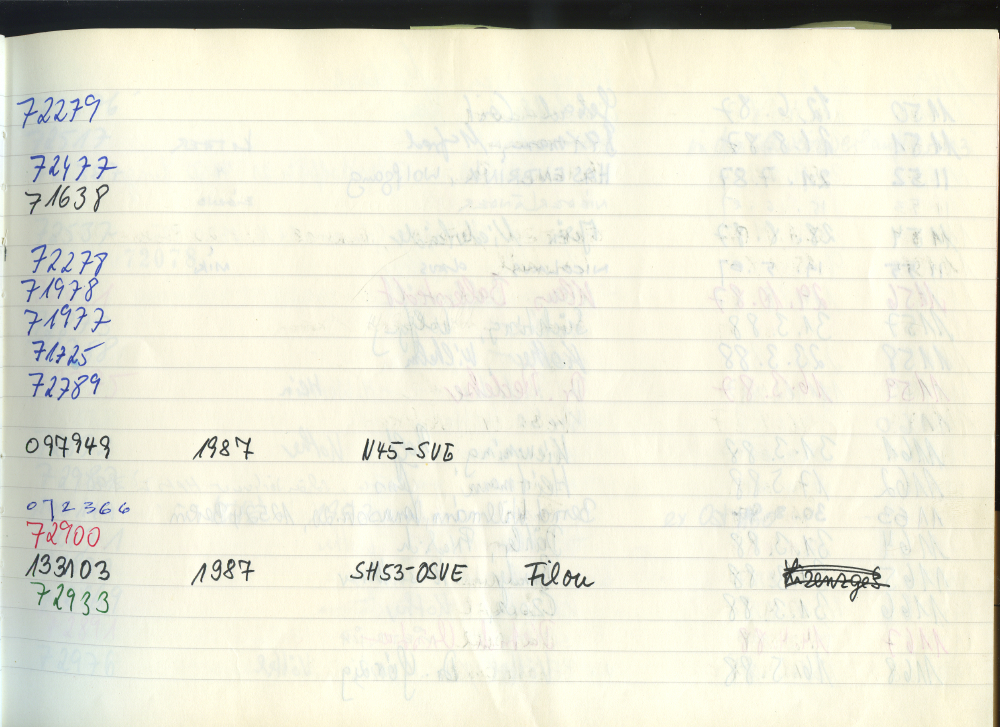 72279
72477
71638
72278
71978
71977
71725
72789
097949 1987 N45-SVE
072366
72900
133103 1987 SH53-OSVE Filou
72933